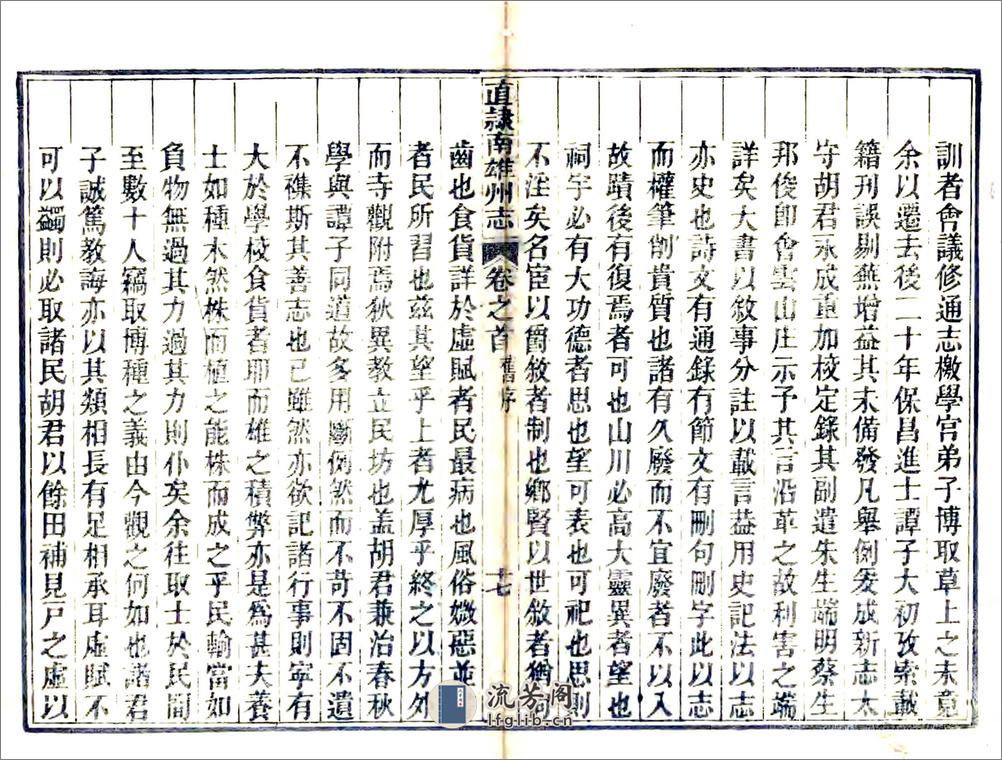 訓者會議修通志檄學官弟子博取草上之未竟
余以遷去後二十年保昌進士譚子大初攷索載
籍刊誤剔蕪增益其未備發凡舉例爰成新志太
守胡君永成重加校定錄其副遣朱生端明蔡生
邦俊卽會雲山庄示予其言沿革之故利害之端
詳矣大書以敘事分註以載言葢用史記法以志
亦史也詩文有通錄有節文有刪句刪字此以志
而權筆削貴質也諸有久廢而不宜廢者不以入
故蹟後有復焉者可也山川必高大靈異者望也
祠宇必有大功德者思也望可表也可祀也思則
不淫矣名宦以爵敘者制也鄉賢以世敘者猶
直隸南雄州志 卷之首 舊序 十七
齒也食貨詳於虛賦者民最病也風俗媺惡並
者民所習也茲其望乎上者尤厚乎終之以方外
而寺觀附焉狄異教立民坊也蓋胡君兼治春秋
學與譚子同道故多用斷例然而不苛不固不遺
不襍斯其善志也已雖然亦欲記諸行事則寧有
大於學校食貨者耶而雄之積弊亦是爲甚夫養
士如種木然株而植之能株而成之乎民輸當如
負物無過其力過其力則仆矣余往取士於民間
至數十人竊取博種之義由今觀之何如也諸君
子誠篤教誨亦以其類相長有足相承耳虛賦不
可以蠲則必取諸民胡君以餘田補見戸之虛以
流芳阁
lfglib.cn